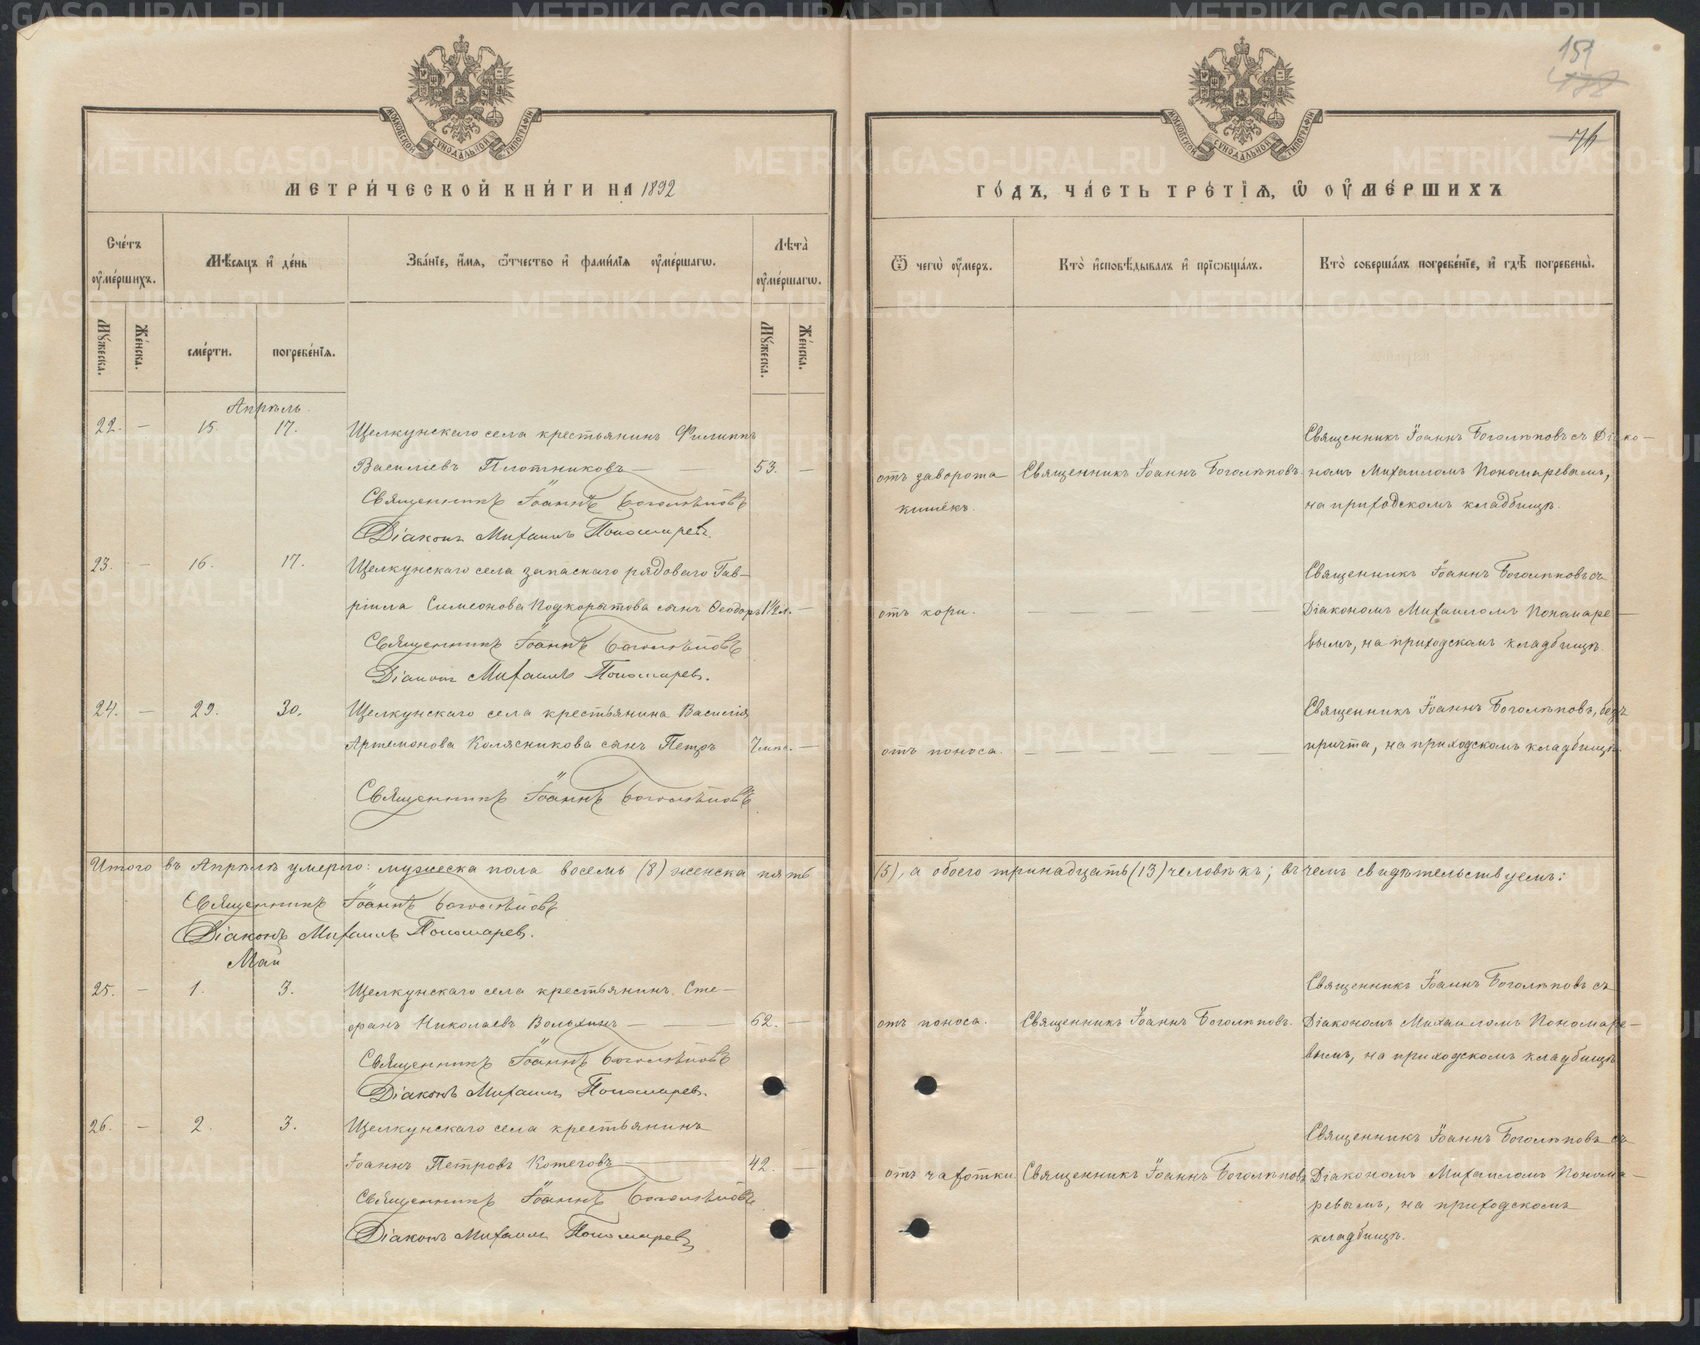 151
МЕТРИ́ЧЕСКОЙ КНИ́ГИ НА 1892
ГО́ДЪ, ЧА́СТЬ ТРЕ́ТІѦ, Ѽ ОУМЕ́РШИХЪ
Сче́тъ оуме́ршихъ.
Мѣсяцъ и де́нь
Зва́нїе, и́мя, ѻ́тчество и фами́лїя оуме́ршагѡ.
Лѣта̀ оуме́ршагѡ.
Ѿ чегѡ̀ оу́меръ.
Кто̀ исповѣ́дывалъ и прїѡбща́лъ.
Кто̀ соверша́лъ погребе́нїе, и гдѣ̀ погребены̀.
Му́жеска.
Же́нска.
сме́рти.
погребе́нїя.
Му́жеска.
Же́нска.
Апрѣль.
22. — 15. 17. Щелкунскаго села крестьянинъ Филиппъ
Василіевъ Плотниковъ — 53. —
Священникъ Іоаннъ Боголѣповъ
Діаконъ Михаилъ Пономаревъ.
отъ заворота
кишекъ.
Священникъ Іоаннъ Боголѣповъ.
Священникъ Іоаннъ Боголѣповъ съ Діако-
номъ Михаиломъ Пономаревымъ,
на приходскомъ кладбищѣ.
23. — 16. 17. Щелкунскаго села запаснаго рядоваго Гав-
ріила Симеонова Подкорытова сынъ Ѳеодоръ 1½ л. —
Священникъ Іоаннъ Боголѣповъ
Діаконъ Михаилъ Пономарев.
отъ кори.
Священникъ Іоаннъ Боголѣповъ съ
Діакономъ Михаиломъ Пономаре-
вымъ, на приходскомъ кладбищѣ.
24. — 29. 30. Щелкунскаго села крестьянина Василія
Артемонова Колясникова сынъ Петръ —
Священникъ Іоаннъ Боголѣповъ
отъ поноса.
Священникъ Іоаннъ Боголѣповъ, безъ
причта, на приходскомъ кладбищѣ.
Итого въ Апрѣлѣ умерло: мужеска пола восемь (8) женска пять
(5), а обоего тринадцать (13) человѣкъ; въ чемъ свидѣтельствуемъ:
Священникъ Іоаннъ Боголѣповъ
Діаконъ Михаилъ Пономарев.
Май
25. — 1. 3. Щелкунскаго села крестьянинъ Сте-
фанъ Николаевъ Волохинъ — 62. —
Священникъ Іоаннъ Боголѣповъ
Діаконъ Михаилъ Пономарев.
отъ поноса.
Священникъ Іоаннъ Боголѣповъ.
Священникъ Іоаннъ Боголѣповъ съ
Діакономъ Михаиломъ Пономаре-
вымъ, на приходскомъ кладбищѣ
26. — 2. 3. Щелкунскаго села крестьянинъ
Іоаннъ Петровъ Котеговъ — 42. —
Священникъ Іоаннъ Боголѣповъ
Діаконъ Михаилъ Пономаревъ
отъ чахотки
Священникъ Іоаннъ Боголѣповъ
Священникъ Іоаннъ Боголѣповъ съ
Діакономъ Михаиломъ Понома-
ревымъ, на приходскомъ
кладбищѣ.
METRIKI.GASO-URAL.RU